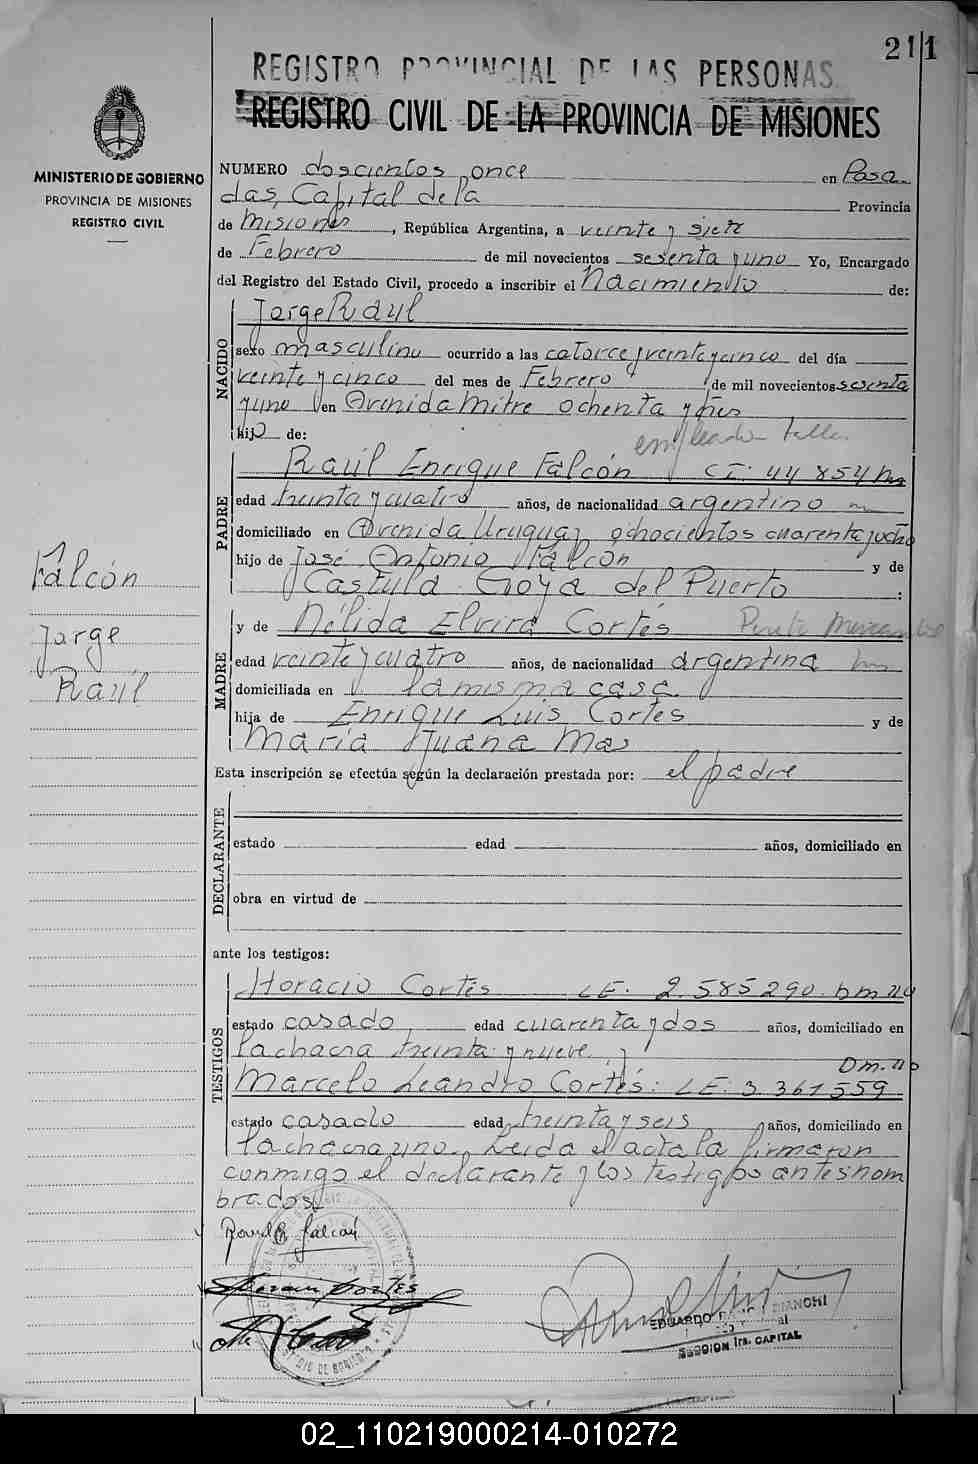 211
REGISTRO PROVINCIAL DE LAS PERSONAS
REGISTRO CIVIL DE LA PROVINCIA DE MISIONES
MINISTERIO DE GOBIERNO
PROVINCIA DE MISIONES
REGISTRO CIVIL
NUMERO doscientos once en Posa
das, Capital de la Provincia
de Misiones, República Argentina, a veinte y siete
de Febrero de mil novecientos sesenta y uno Yo, Encargado
del Registro del Estado Civil, procedo a inscribir el Nacimiento de:
NACIDO
Jorge Raúl
sexo masculino ocurrido a las catorce y veinte y cinco del día
veinte y cinco del mes de Febrero de mil novecientos sesenta
y uno en Avenida Mitre ochenta y tres
hijo de:
empleado taller
PADRE
Raúl Enrique Falcón CI: 44854
edad treinta y cuatro años, de nacionalidad argentino
domiciliado en Avenida Uruguay ochocientos cuarenta y ocho
hijo de José Antonio Falcón y de
Castula Goya del Puerto :
Falcón
Jorge
Raúl
MADRE
y de Nélida Elvira Cortés Perito Mercantil
edad veinte y cuatro años, de nacionalidad argentina
domiciliada en la misma casa
hija de Enrique Luis Cortes y de
María Juana Mas
Esta inscripción se efectúa según la declaración prestada por: el padre
DECLARANTE
estado edad años, domiciliado en
obra en virtud de
ante los testigos:
TESTIGOS
Horacio Cortés LE. 2.585290. Dm. 110
estado casado edad cuarenta y dos años, domiciliado en
la chacra treinta y nueve y
Dm. 110
Marcelo Leandro Cortés: LE: 3.361559
estado casado edad treinta y seis años, domiciliado en
la chacra uno. Leida el acta la firmaron
conmigo el declarante y los testigos antes nom
brados
Falcón
Cortes
EDUARDO BIANCHI
SECCION 1ra. CAPITAL
02_110219000214-010272